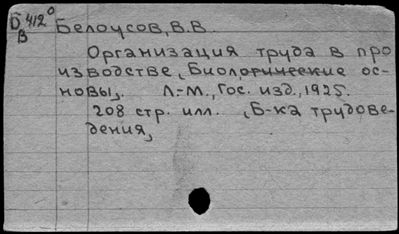 Б 412⁰ Белоусов, В.В.
В
Организация труда в про
изводстве, Биологические ос-
новы, Л.-М., Гос. изд., 1925.
208 стр. илл. , Б-ка трудове-
дения,